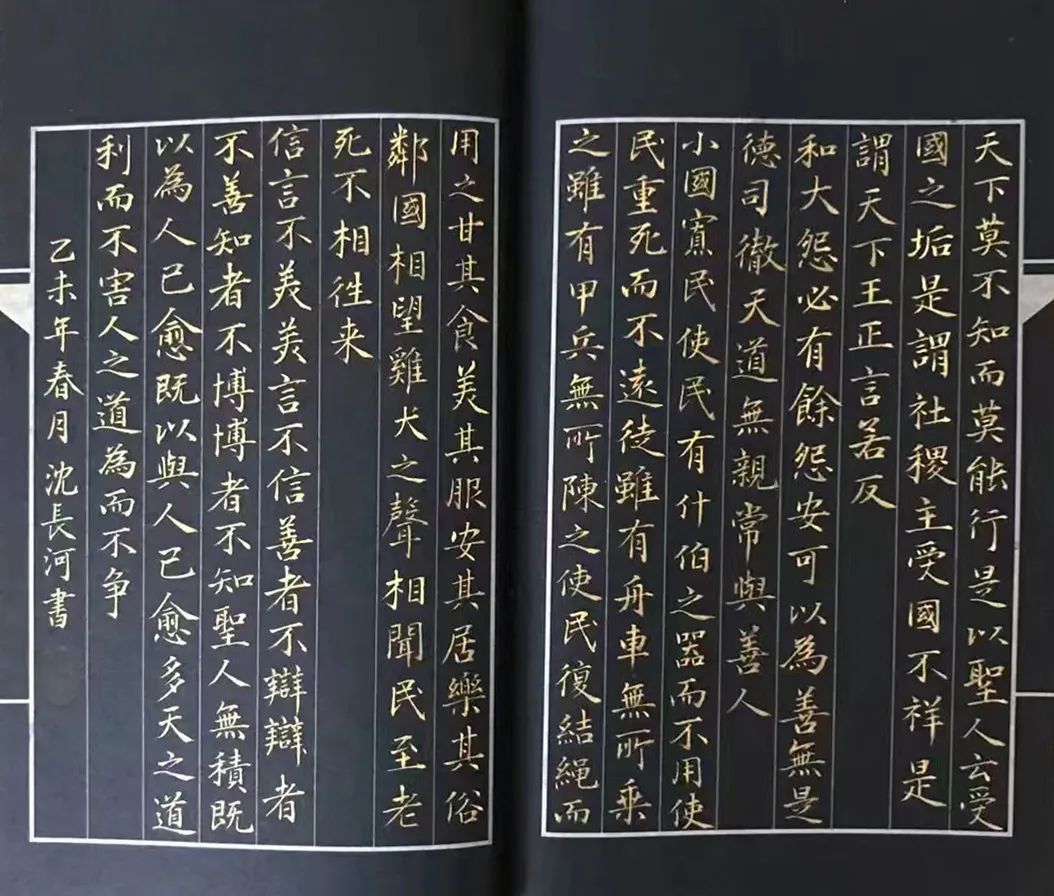 天下莫不知而莫能行是以聖人云受
國之垢是謂社稷主受國不祥是
謂天下王正言若反
和大怨必有餘怨安可以為善無是
德司徹天道無親常與善人
小國寡民使民有什伯之器而不用使
民重死而不遠徒雖有舟車無所乘
之雖有甲兵無所陳之使民復結繩而
用之甘其食美其服安其居樂其俗
鄰國相望雞犬之聲相聞民至老
死不相往来
信言不美美言不信善者不辯辯者
不善知者不博博者不知聖人無積既
以為人己愈既以與人己愈多天之道
利而不害人之道為而不争
乙未年春月沈長河書